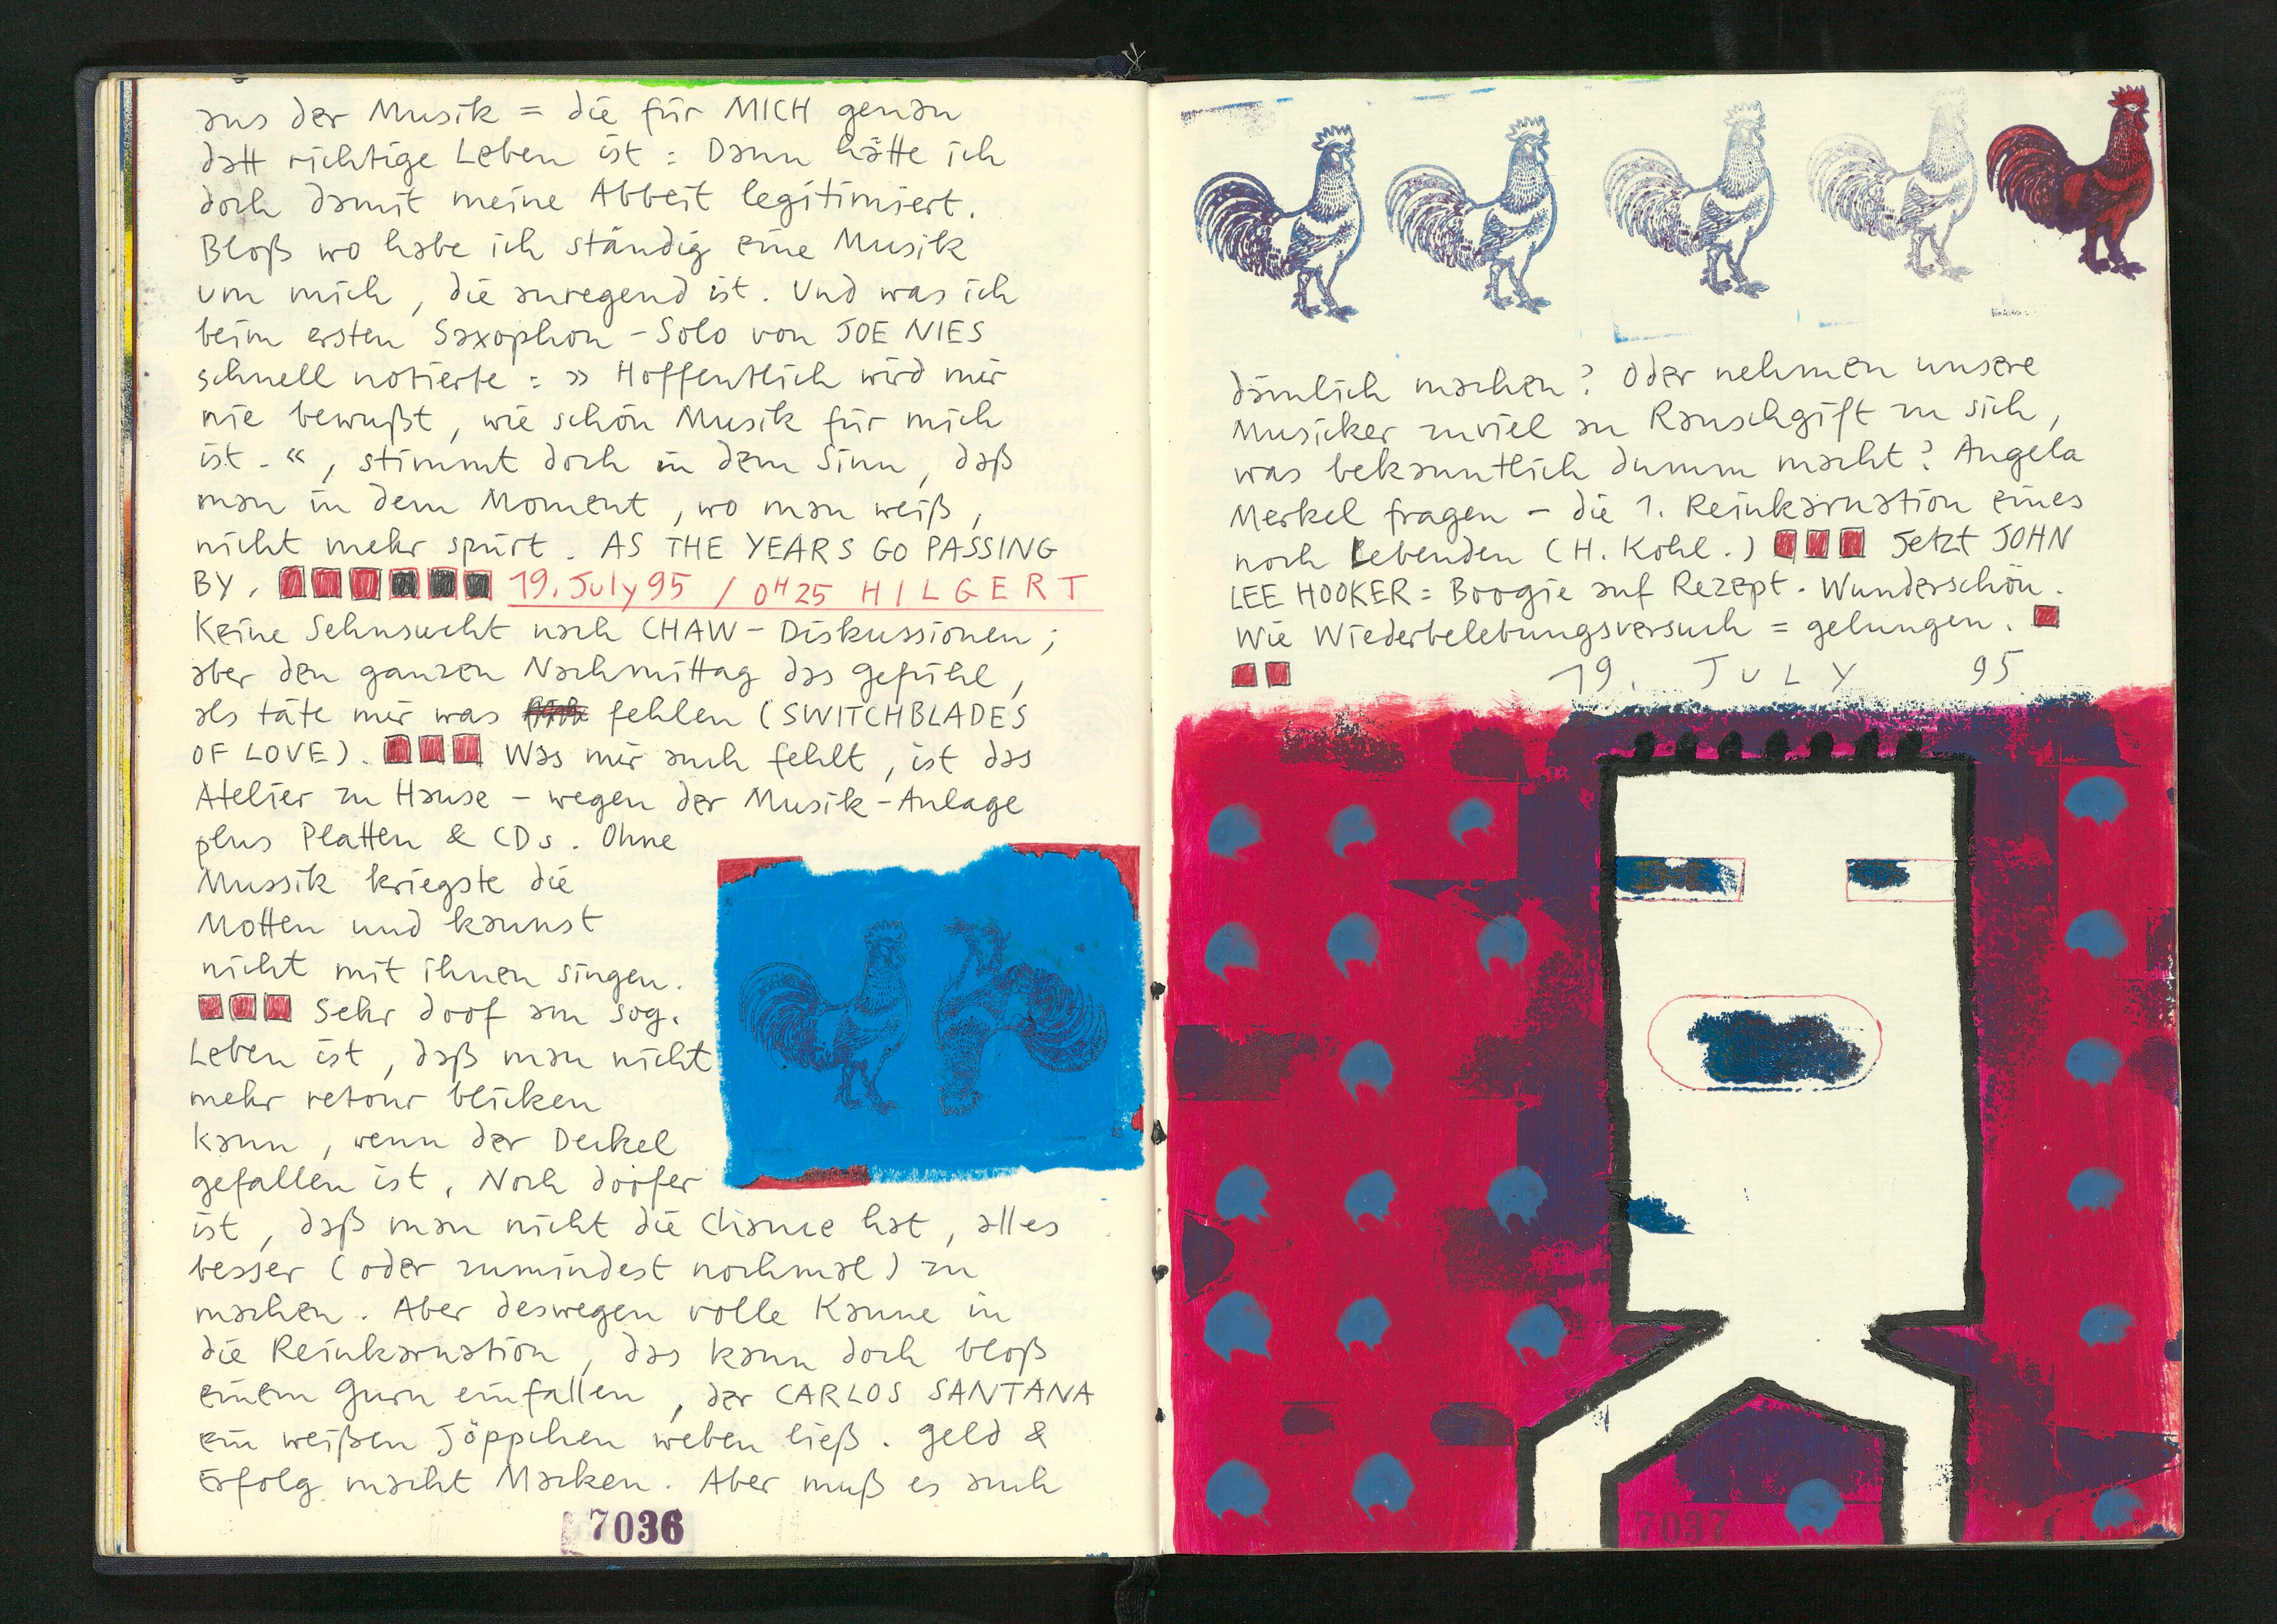 aus der Musik = die für MICH genau
datt richtige Leben ist : Dann hätte ich
doch damit meine Abbeit legitimiert.
Bloß wo habe ich ständig eine Musik
um mich, die anregend ist. Und was ich
beim ersten Saxophon-Solo von JOE NIES
schnell notierte : » Hoffentlich wird mir
nie bewußt, wie schön Musik für mich
ist. «, stimmt doch in dem Sinn, daß
man in dem Moment, wo man weiß,
nicht mehr spürt. AS THE YEARS GO PASSING
BY. 19. July 95 / 0H25 HILGERT
Keine Sehnsucht nach CHAW-Diskussionen;
aber den ganzen Nachmittag das Gefühl,
als täte mir was fehlen (SWITCHBLADES
OF LOVE). Was mir auch fehlt, ist das
Atelier zu Hause - wegen der Musik-Anlage
plus Platten & CDs. Ohne
Mussik kriegste die
Motten und kannst
nicht mit ihnen singen.
Sehr doof am sog.
Leben ist, daß man nicht
mehr retour blicken
kann, wenn der Deckel
gefallen ist. Noch doofer
ist, daß man nicht die Chance hat, alles
besser (oder zumindest nochmal) zu
machen. Aber deswegen volle Kanne in
die Reinkarnation, das kann doch bloß
einem Guru einfallen, der CARLOS SANTANA
ein weißen Jöppchen weben ließ. Geld &
Erfolg macht Macken. Aber muß es auch
7036
dämlich machen? Oder nehmen unsere
Musicker zuviel an Rauschgift zu sich,
was bekanntlich dumm macht? Angela
Merkel fragen - die 1. Reinkarnation eines
noch Lebenden (H. Kohl.) Jetzt JOHN
LEE HOOKER = Boogie auf Rezept. Wunderschön.
Wie Wiederbelebungsversuch = gelungen.
19. JULY 95
7037